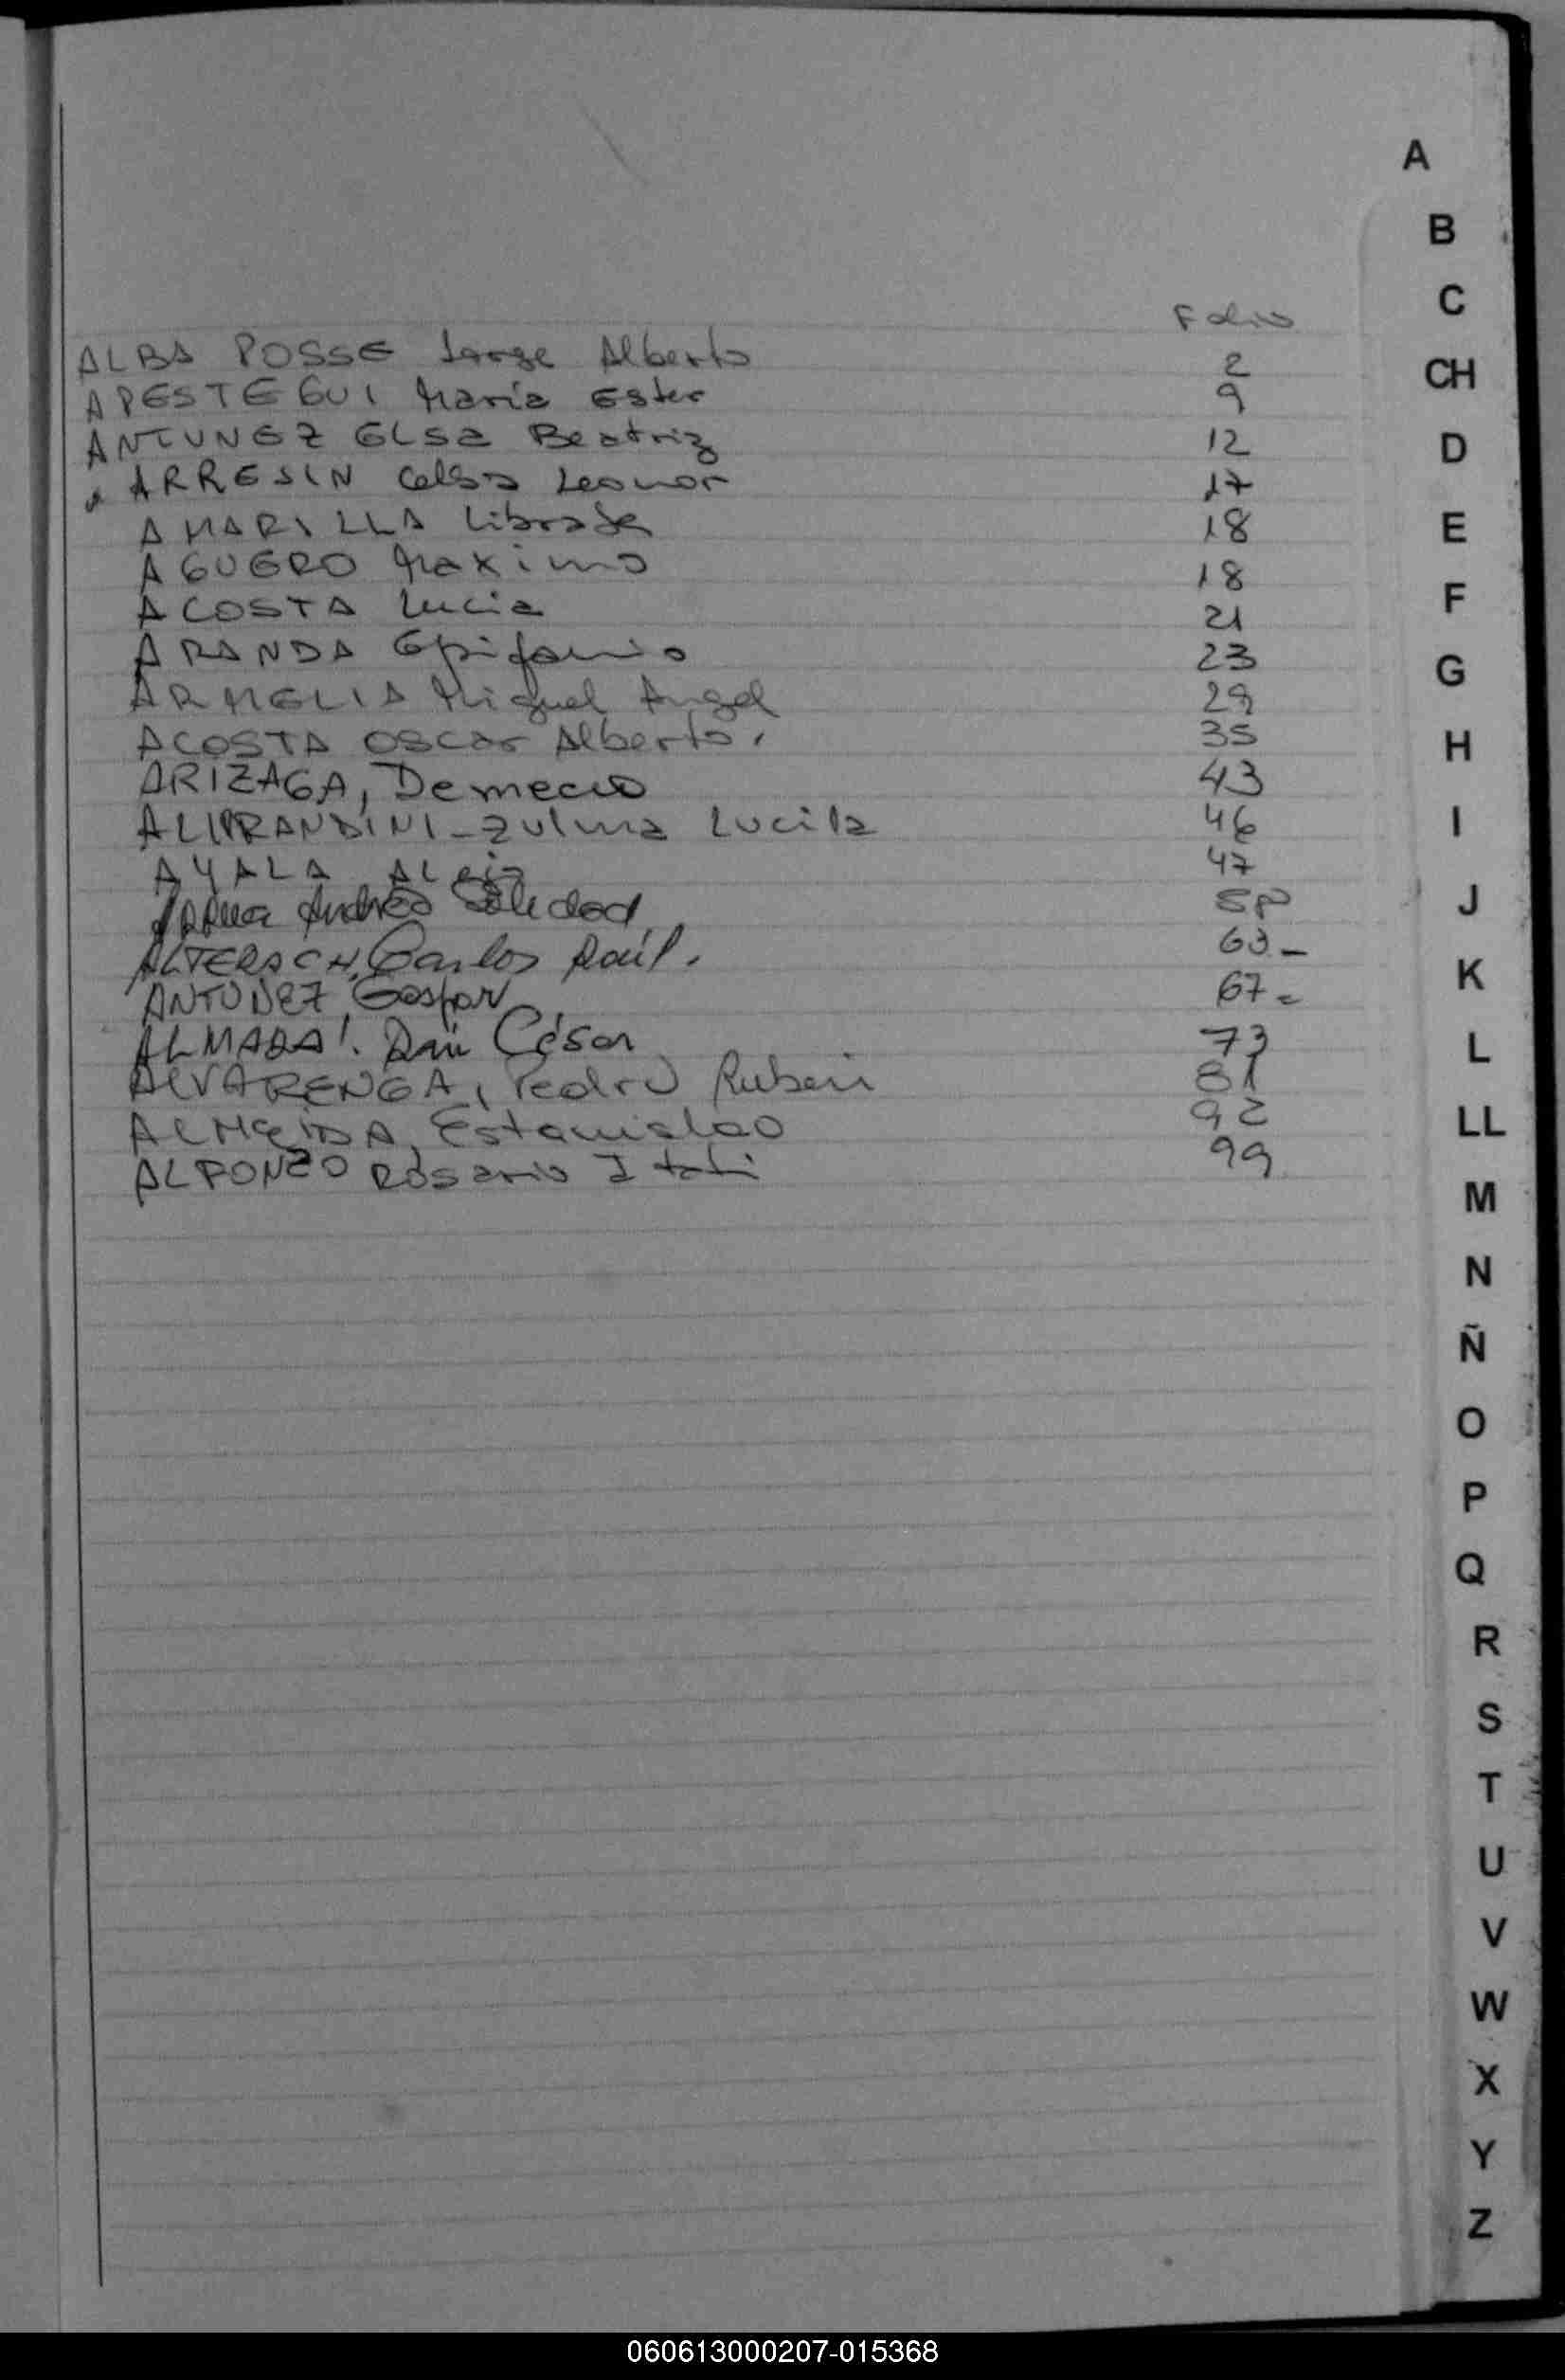 Folio
ALBA POSSE Jorge Alberto 2
APESTEGUI Maria Ester 9
ANTUNEZ ELSA Beatriz 12
ARRESIN Celsa Leonor 17
AMARILLA Librada 18
AGUERO Maximo 18
ACOSTA Lucia 21
ARANDA Epifanio 23
ARMELIA Miguel Angel 29
ACOSTA Oscar Alberto. 35
ARIZAGA, Demecio 43
ALIPRANDINI - Zulma Lucila 46
AYALA 47
Andrea Soledad
ALTERACH, Carlos Raúl. 63 -
ANTUNEZ, Gaspar 67 -
ALMADA César 73
ALVARENGA, Pedro Ruben 81
ALMEIDA, Estanislao 92
ALFONZO Rosario Itati 99
A
B
C
CH
D
E
F
G
H
I
J
K
L
LL
M
N
Ñ
O
P
Q
R
S
T
U
V
W
X
Y
Z
060613000207-015368